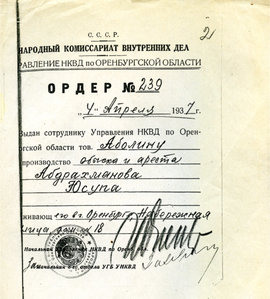 2
С. С. С. Р.
НАРОДНЫЙ КОМИССАРИАТ ВНУТРЕННИХ ДЕЛ
УПРАВЛЕНИЕ НКВД по ОРЕНБУРГСКОЙ ОБЛАСТИ
ОРДЕР № 239
„4" Апреля 1937 г.
Выдан сотруднику Управления НКВД по Орен-
бургской области тов. Аболину
производство обыска и ареста
Абдрахманова
Юсупа
Оренбург Набережная
улица дом № 18
Начальник Управления НКВД по Оренб. обл.
Начальник отдела УГБ УНКВД